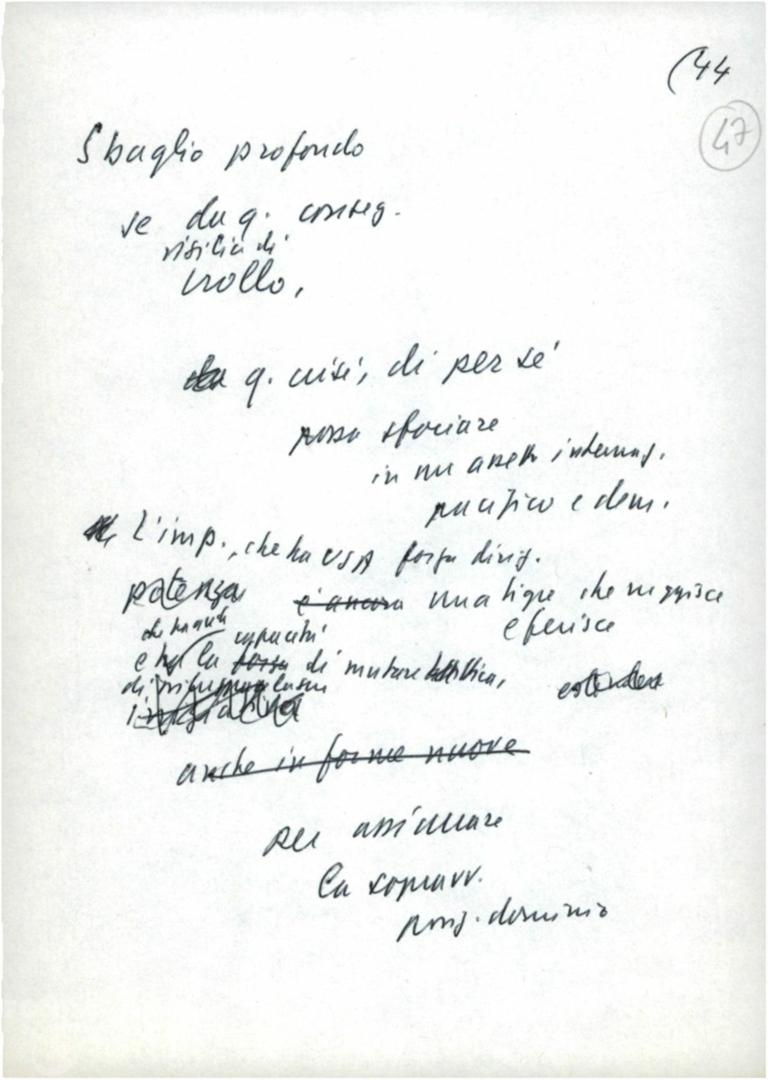 (44
47
Sbaglio profondo
se da q. conseg.
vigilia di
crollo,
da q. crisi, di per sé
possa sfociare
in un assetto internaz.
pacifico e dem.
L'imp., che ha USA forza dirig.
potenza è ancora una tigre che ruggisce
e ferisce
che ha anch capacità
e ha la forza di mutare tattica,
di
anche in forme nuove
per assicurare
la sopravv.
posiz. dominio